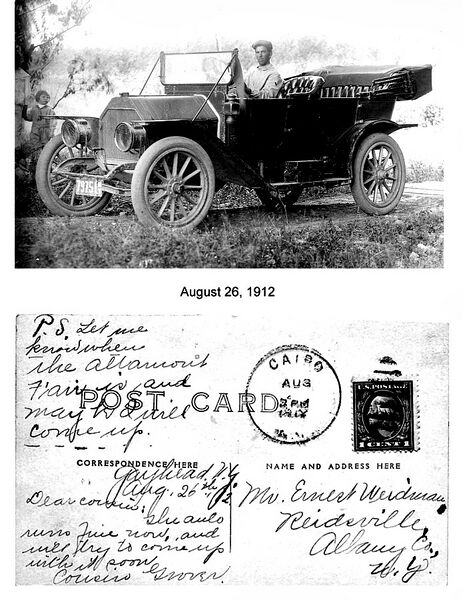 7975
August 26, 1912
P.S. Let me
know when
the altamont
Fair is, and
may be I will
come up.
POST CARD
CAIRO
AUG
N.Y.
U.S. POSTAGE
1 CENT 1
CORRESPONDENCE HERE
Gayhead, N.Y.
Aug. 26th 12
Dear cousin:
The auto
runs fine now, and
will try to come up
with it soon,
Cousin Grover.
NAME AND ADDRESS HERE
Mr. Ernest Weidman
Reidsville,
Albany Co.,
N.Y.